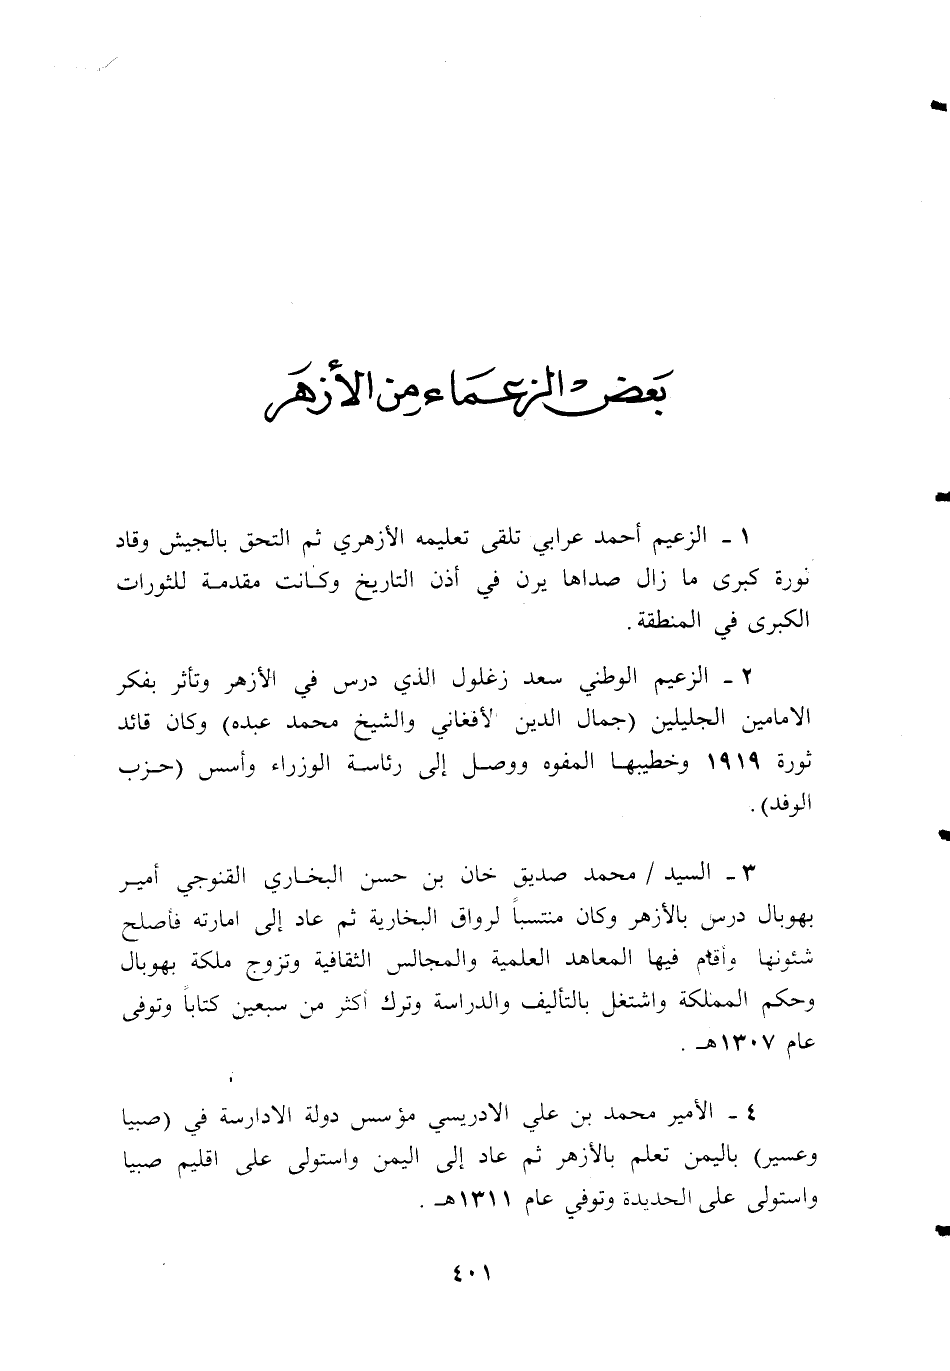 بعض الزعماء من الأزهر
١ ـ الزعيم أحمد عرابي تلقى تعليمه الأزهري ثم التحق بالجيش وقاد
ثورة كبرى ما زال صداها يرن في أذن التاريخ وكانت مقدمة للثورات
الكبرى في المنطقة .
٢ ـ الزعيم الوطني سعد زغلول الذي درس في الأزهر وتأثر بفكر
الامامين الجليلين (جمال الدين لأفغاني والشيخ محمد عبده) وكان قائد
ثورة ١٩١٩ وخطيبها المفوه ووصل إلى رئاسة الوزراء وأسس (حزب
الوفد) .
٣ ـ السيد / محمد صديق خان بن حسن البخاري القنوجي أمير
بهوبال درس بالأزهر وكان منتسباً لرواق البخارية ثم عاد إلى امارته فأصلح
شئونها وأقام فيها المعاهد العلمية والمجالس الثقافية وتزوج ملكة بهوبال
وحكم المملكة واشتغل بالتأليف والدراسة وترك أكثر من سبعين كتاباً وتوفى
عام ١٣٠٧هـ .
٤ ـ الأمير محمد بن علي الادريسي مؤسس دولة الادارسة في (صبيا
وعسير) باليمن تعلم بالأزهر ثم عاد إلى اليمن واستولى على اقليم صبيا
واستولى على الحديدة وتوفي عام ١٣١١هـ .
٤٠١